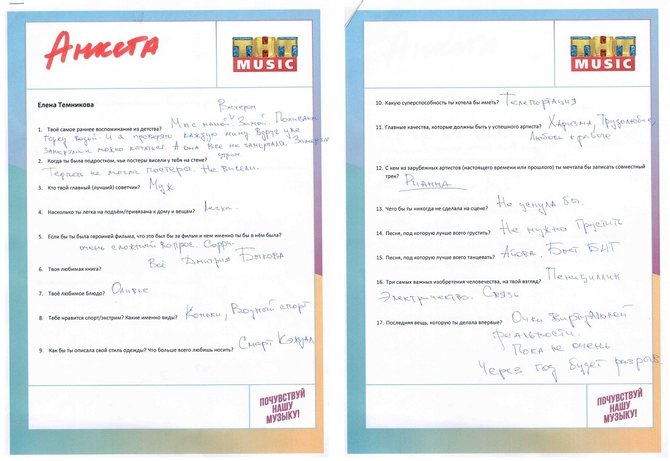 Анкета
ТНТ
MUSIC
Елена Темникова
Вечером
1. Твоё самое раннее воспоминание из детства? Мы с мамой Зимой. Поливаем
горку водой и я проверяю каждую мину. Вдруг уже
замерзла и можно кататься. А она все не замерзала. Замерзла
утром
2. Когда ты была подростком, чьи постеры висели у тебя на стене?
Терпеть не могла постеры. Не висели.
3. Кто твой главный (лучший) советчик? Муж
4. Насколько ты легка на подъём/привязана к дому и вещам? Легка.
5. Если бы ты была героиней фильма, что это был бы за фильм и кем именно ты бы в нём была?
очень сложный вопрос. Сорри.
Всё Дмитрия Быкова
6. Твоя любимая книга?
7. Твоё любимое блюдо? Оливье
8. Тебе нравится спорт/экстрим? Какие именно виды? Коньки, Водной спорт
9. Как бы ты описала свой стиль одежды? Что больше всего любишь носить? Смарт Кэжуал
ПОЧУВСТВУЙ
НАШУ
МУЗЫКУ!
ТНТ
MUSIC
10. Какую суперспособность ты хотела бы иметь? Телепортация
11. Главные качества, которые должны быть у успешного артиста? Харизма, Трудолюбие,
Любовь к работе
12. С кем из зарубежных артистов (настоящего времени или прошлого) ты мечтала бы записать совместный
трек? Рианна
13. Чего бы ты никогда не сделала на сцене? Не уснула бы.
14. Песня, под которую лучше всего грустить? Не нужно Грустить
15. Песня, под которую лучше всего танцевать? Бьет БИТ
16. Три самых важных изобретения человечества, на твой взгляд? Пенициллин
Электричество. Связь
17. Последняя вещь, которую ты делала впервые? Очки Виртуальной
реальности.
Пока не очень
Через год будет разрыв.
ПОЧУВСТВУЙ
НАШУ
МУЗЫКУ!